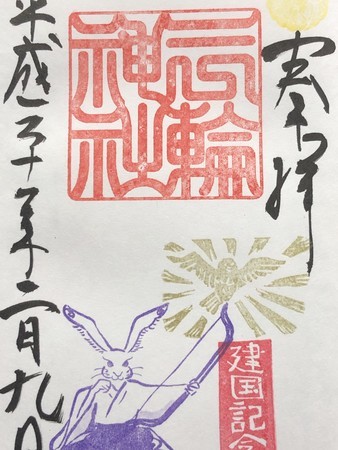 奉拝
三輪
神社
建国記念
平成三十年二月九日